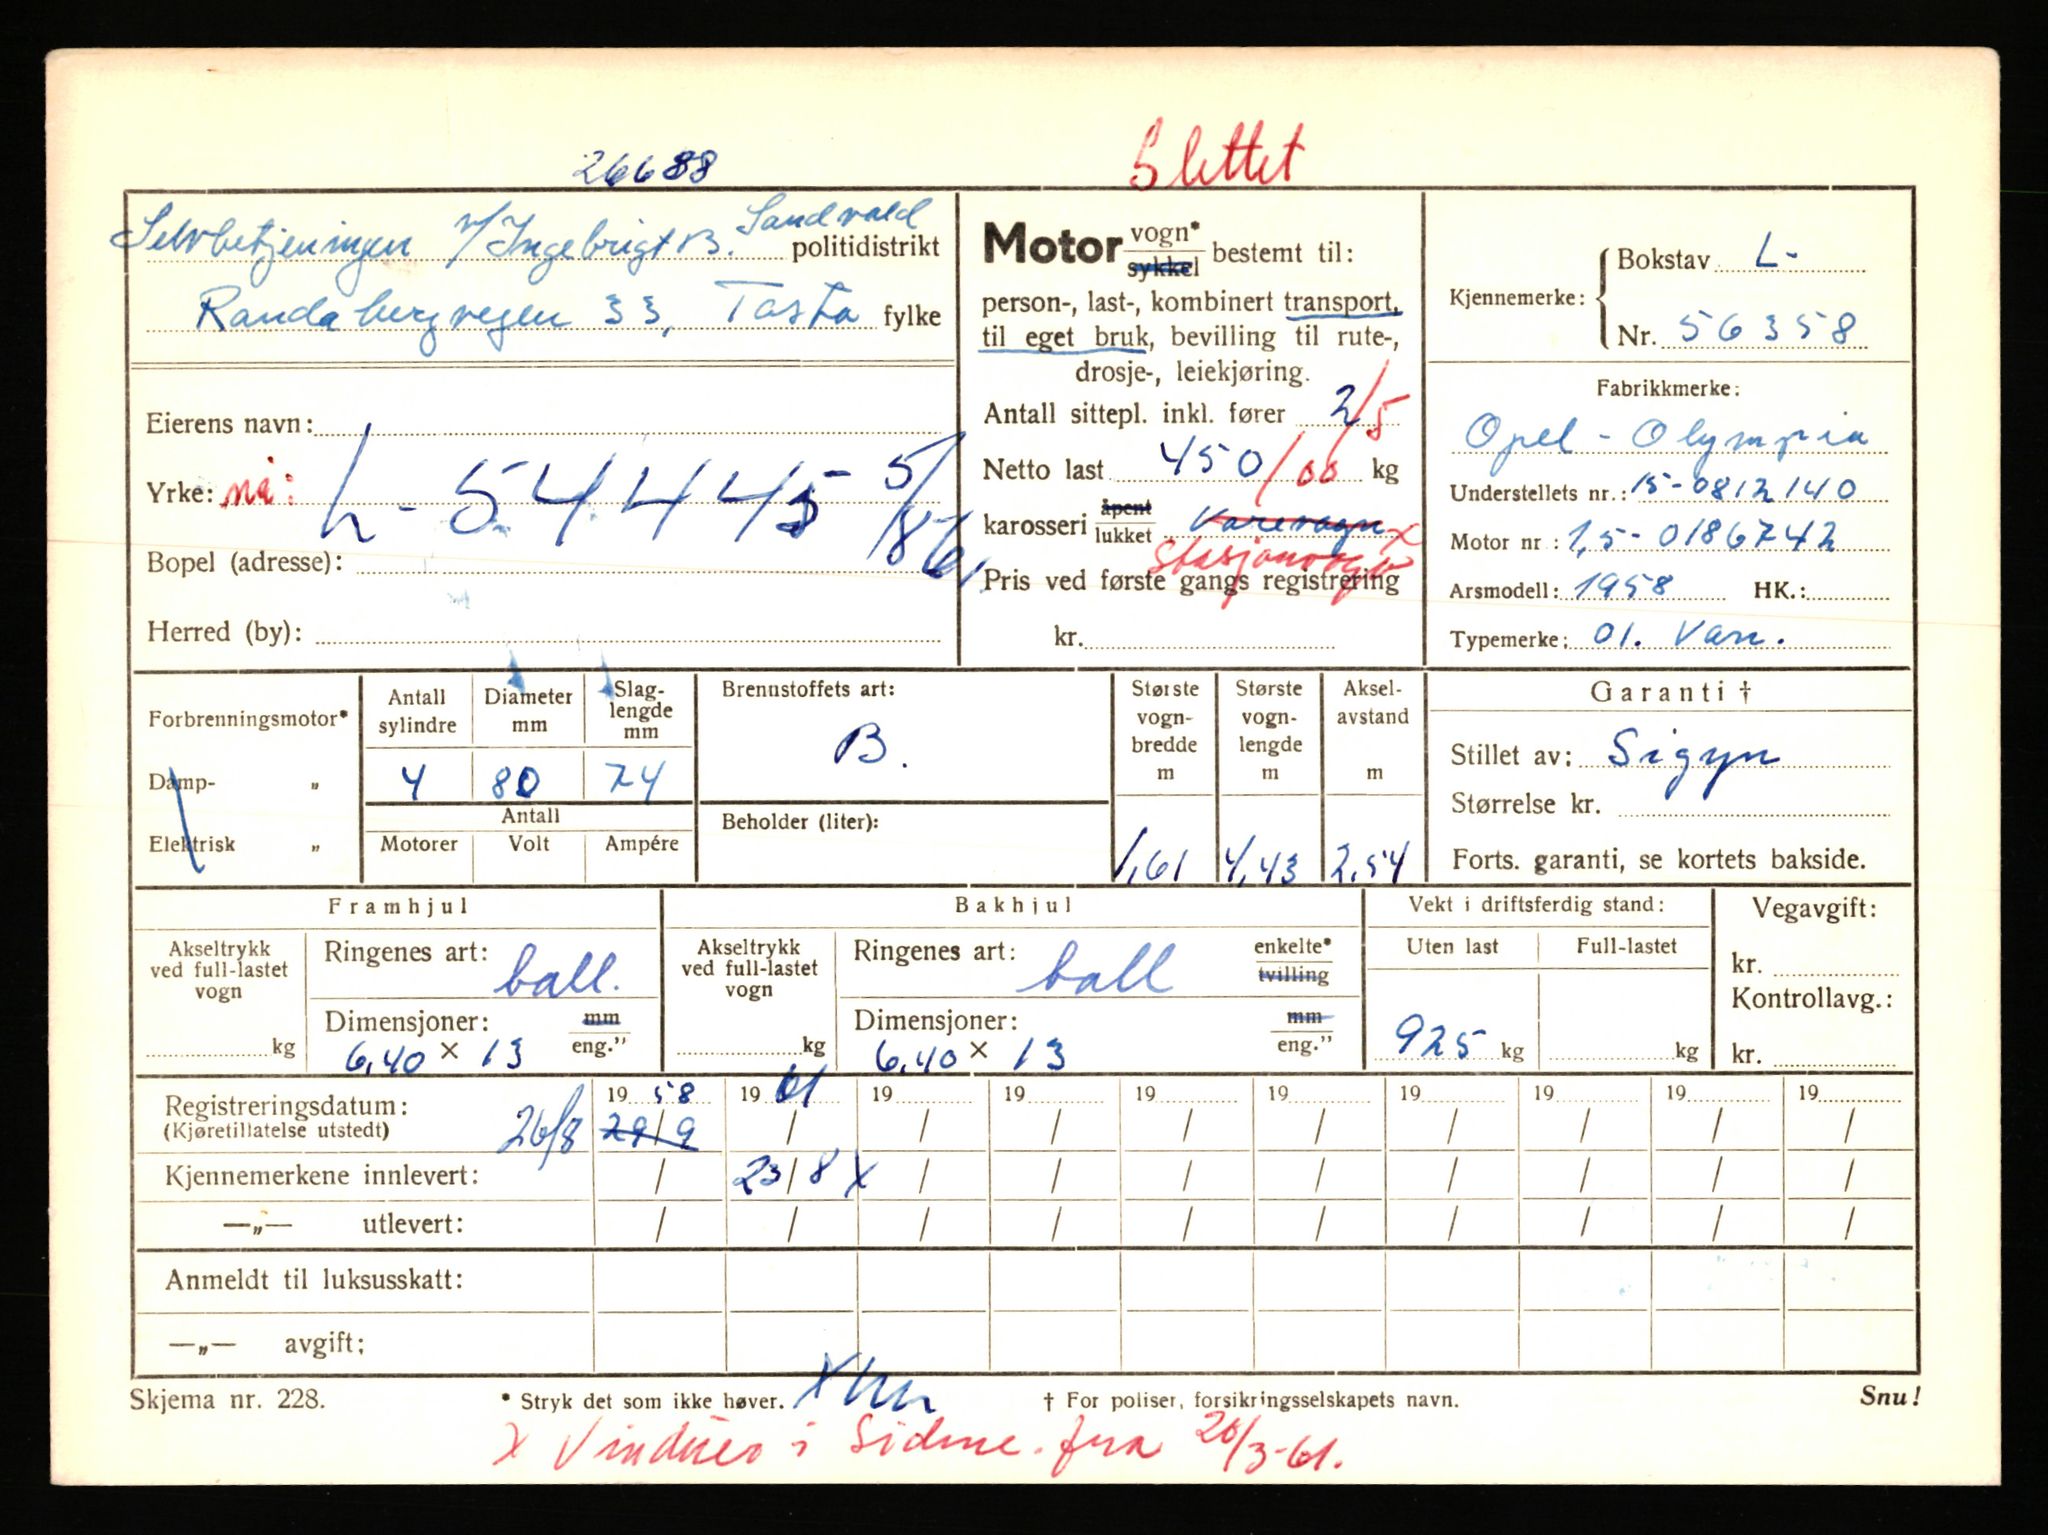 26688
Slettet
Selvbetjeningen v/Ingebrigt B. Sandvald politidistrikt
Randabergvegen 33, Tasta fylke
Eierens navn:
Yrke: nå: L-54445 5/8-61.
Bopel (adresse):
Herred (by):
Motor vogn* sykkel bestemt til:
person-, last-, kombinert transport,
til eget bruk, bevilling til rute-,
drosje-, leiekjøring.
Antall sittepl. inkl. fører 2/5
Netto last 450/00 kg
karosseri åpent lukket Varevogn x
Stasjonsvogn
Pris ved første gangs registrering
kr.
Kjennemerke: Bokstav L-
Nr. 56358
Fabrikkmerke:
Opel - Olympia
Understellets nr.: 15-0812140
Motor nr: 1,5-0186742
Arsmodell: 1958 HK.:
Typemerke: 01. Van.
Forbrenningsmotor*
Damp- „
Elektrisk „
Antall sylindre
4
Diameter mm
80
Slaglengde mm
74
Antall
Motorer Volt Ampére
Brennstoffets art:
B.
Beholder (liter):
Største vognbredde m
1,61
Største vognlengde m
4,43
Akselavstand m
2,54
Garanti †
Stillet av: Sigyn
Størrelse kr.
Forts. garanti, se kortets bakside.
Framhjul
Akseltrykk ved full-lastet vogn
kg
Ringenes art: ball.
Dimensjoner: mm
6,40 x 13 eng."
Bakhjul
Akseltrykk ved full-lastet vogn
kg
Ringenes art: ball enkelte* tvilling
Dimensjoner: mm
6,40 x 13 eng."
Vekt i driftsferdig stand:
Uten last Full-lastet
925 kg kg
Vegavgift:
kr.
Kontrollavg.:
kr.
19 58 19 61 19 19 19 19 19 19 19 19
Registreringsdatum: 26/8 29/9 / / / / / / / / /
(Kjøretillatelse utstedt)
Kjennemerkene innlevert: / 23/8 x / / / / / / / /
—„— utlevert: / / / / / / / / / /
Anmeldt til luksusskatt:
—„— avgift:
Skjema nr. 228. * Stryk det som ikke høver. † For poliser, forsikringsselskapets navn. Snu!
x Vinduer i Sidene fra 28/3-61.